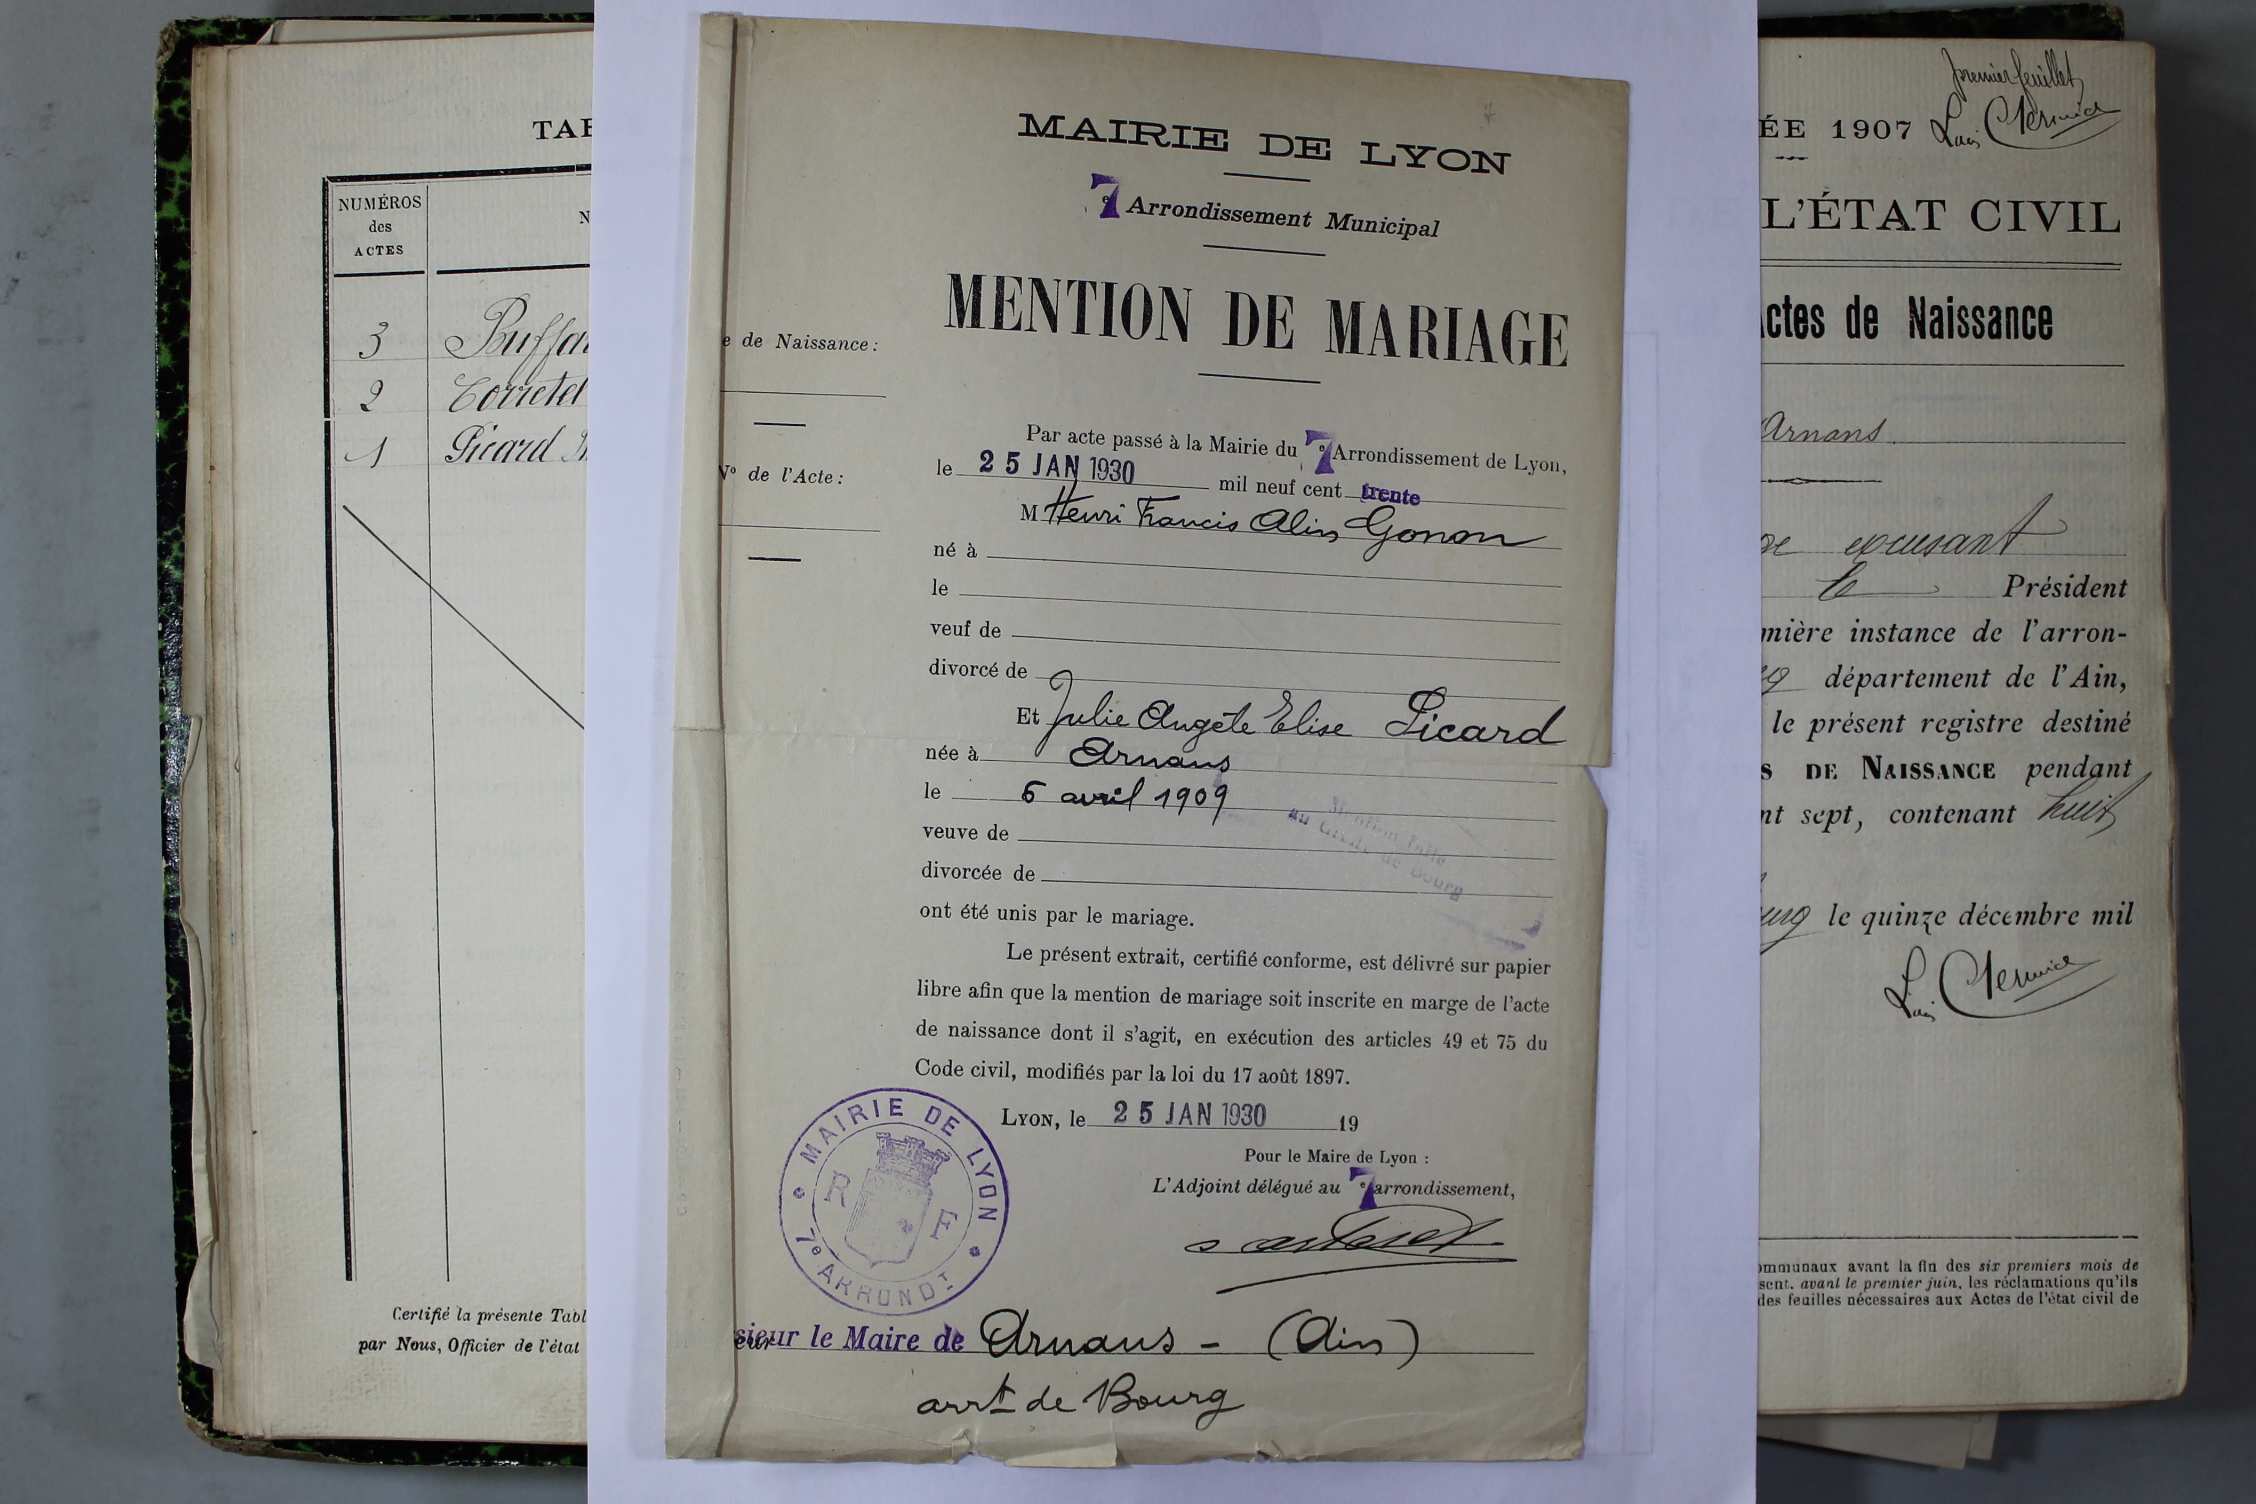 TAB
NUMÉROS
des
ACTES
N
3 Buffa
2 Corretel
1 Picard
Certifié la présente Tabl
par Nous, Officier de l'état
MAIRIE DE LYON
7e Arrondissement Municipal
MENTION DE MARIAGE
e de Naissance :
N° de l'Acte :
Par acte passé à la Mairie du 7e Arrondissement de Lyon,
le 25 JAN 1930 mil neuf cent trente
M Henri Francis Alin Gonon
né à
le
veuf de
divorcé de
Et Julie Angèle Elise Picard
née à Arnans
le 6 avril 1909
veuve de
divorcée de
Mention faite
au Greffe de Bourg
ont été unis par le mariage.
Le présent extrait, certifié conforme, est délivré sur papier
libre afin que la mention de mariage soit inscrite en marge de l'acte
de naissance dont il s'agit, en exécution des articles 49 et 75 du
Code civil, modifiés par la loi du 17 août 1897.
LYON, le 25 JAN 1930 19
Pour le Maire de Lyon :
L'Adjoint délégué au 7e arrondissement,
MAIRIE DE LYON
R F
7e ARRONDT
sieur le Maire de Arnans - (Ain)
arrt de Bourg
premier feuillet
ÉE 1907
L'ÉTAT CIVIL
Actes de Naissance
Arnans
excusant
le Président
mière instance de l'arron-
département de l'Ain,
le présent registre destiné
S DE NAISSANCE pendant
nt sept, contenant huit
urg le quinze décembre mil
ommunaux avant la fin des six premiers mois de
sent, avant le premier juin, les réclamations qu'ils
des feuilles nécessaires aux Actes de l'état civil de